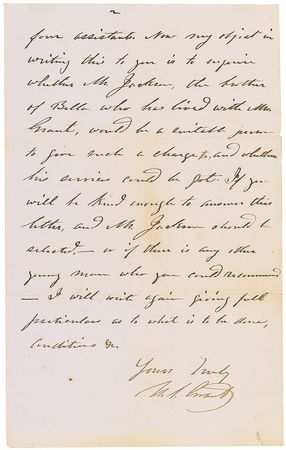 2
four assistants. Now my object in
writing this to you is to enquire
whether Mr. Jackson, the brother
of Bella who has lived with Mrs.
Grant, would be a suitable person
to give such a charge to, and whether
his services could be got. If you
will be kind enough to answer this
letter, and Mr. Jackson should be
selected,— or if there is any other
young man who you could recommend
— I will write again giving full
particulars as to what is to be done,
conditions &c.
Yours Truly
U. S. Grant